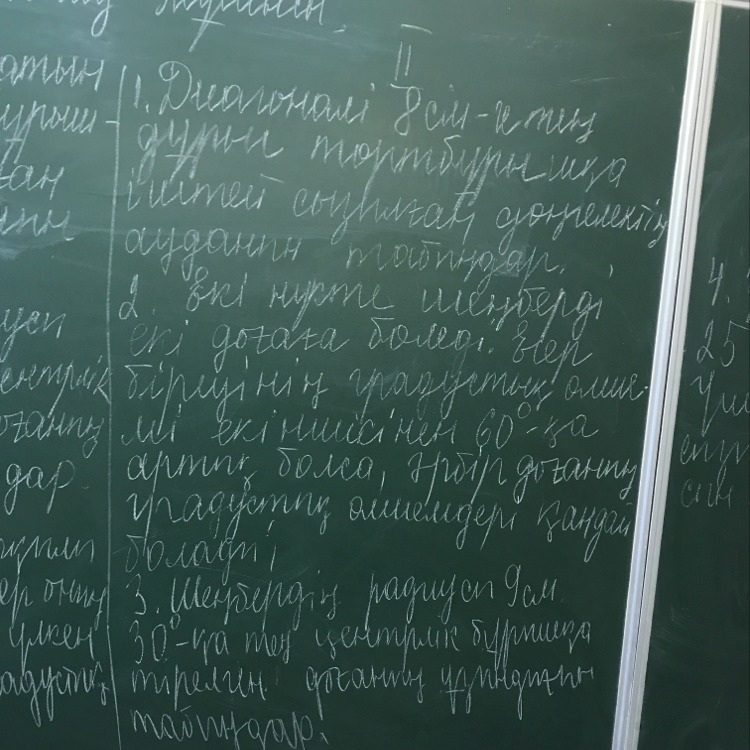 II
атын
1. Диагоналі 8 см-ге тең
дұрыс төртбұрышқа
іштей сызылған дөңгелектің
ауданын табыңдар.
2. Екі нүкте шеңберді
екі доғаға бөледі. Егер
біреуінің градустық өлше-
мі екіншісінен 60°-қа
артық болса, әрбір доғаның
градустық өлшемдері қандай
болады?
3. Шеңбердің радиусы 9 см.
30°-қа тең центрлік бұрышқа
тірелген доғаның ұзындығын
табыңдар.
ентрлік
оғаның
дар.
ер оның
үлкен
адустық
4.
25